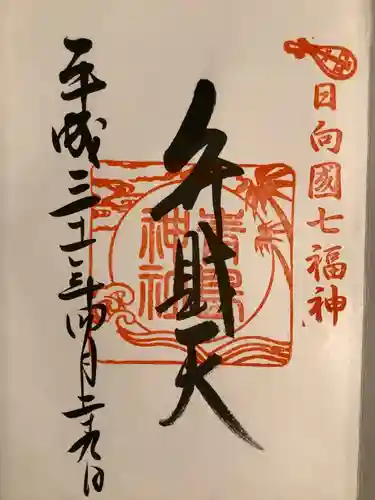 日向國七福神
弁財天
青島神社
平成三十一年四月二十九日